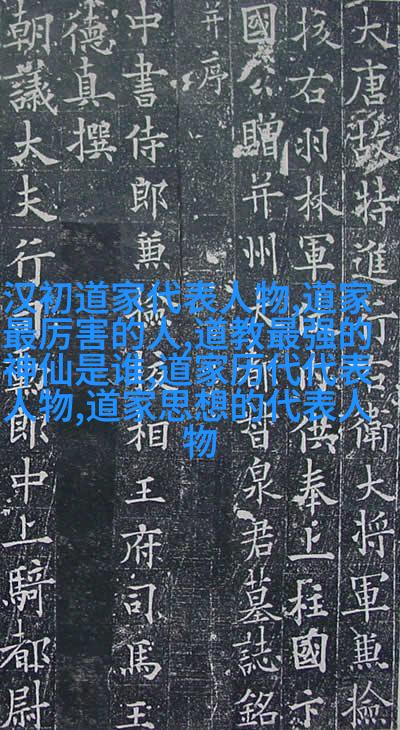 大唐故特進行右衛大將軍兼檢
校右羽林軍仗內供奉上柱國卞
國公贈并州大都督泉君墓誌銘
并序
中書侍郎兼檢校相王府司馬王
德真撰
朝議大夫行司勳郎中上騎都尉
汉初道家代表人物,道家
最厉害的人,道教最强的
神仙是谁,道家历代代表
人物,道家思想的代表人
物